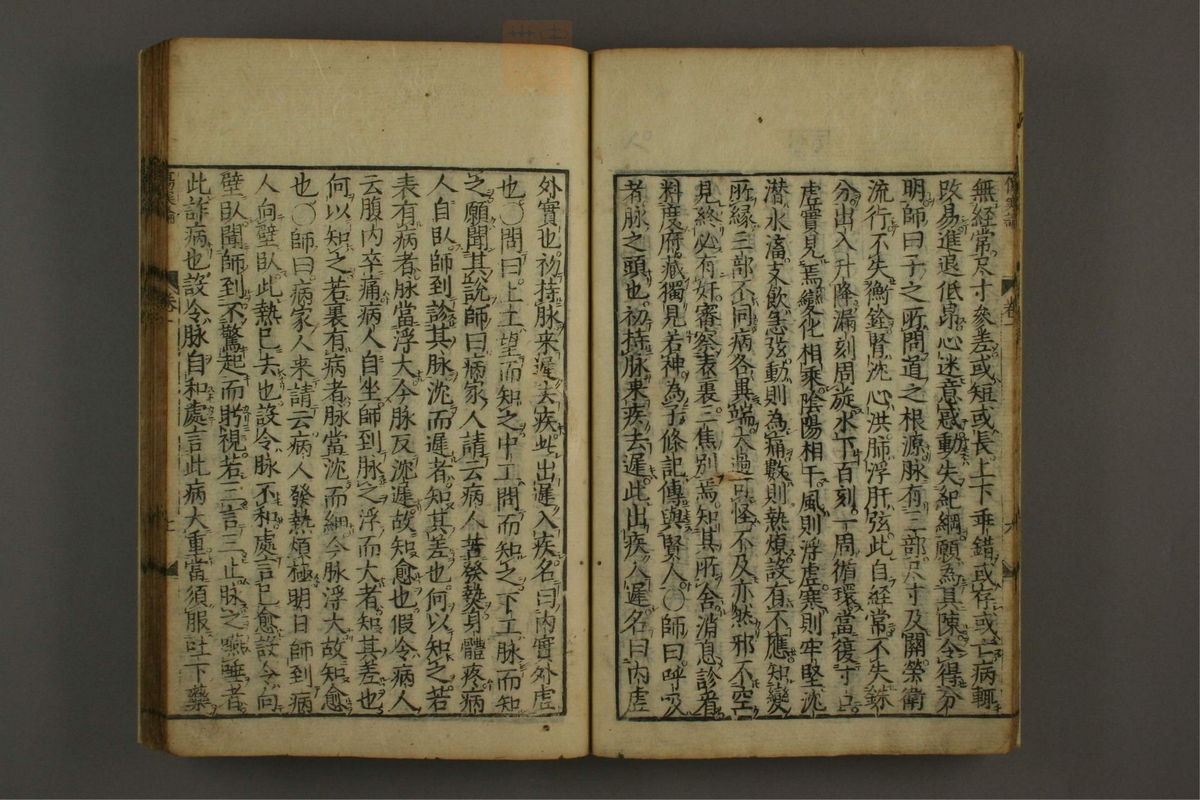 無經常尺寸參差或短或長上下乖錯或存或亡病輙
改易進退低昻心迷意惑動失紀綱願為其陳令得分
明師曰子之所問道之根源脉有三部尺寸及關榮衛
流行不失衡銓腎沈心洪肺浮肝弦此自經常不失銖
分出入升降漏刻周旋水下百刻一周循環當復寸口
虚實見焉變化相乘陰陽相干風則浮虚寒則牢堅沈
潜水滀支飲急弦動則為痛數則熱煩設有不應知變
所縁三部不同病各異端太過可怪不及亦然邪不空
見終必有奸審察表裏三焦別焉知其所舍消息診看
料度府藏獨見若神為子條記傳與賢人〇師曰呼吸
者脉之頭也初持脉來疾去遲此出疾入遲名曰内虚
外實也初持脉來遲去疾此出遲入疾名曰内實外虚
也〇問曰上工望而知之中工問而知之下工脉而知
之願聞其説師曰病家人請云病人苦發熱身體疼病
人自臥師到診其脉沈而遲者知其差也何以知之若
表有病者脉當浮大今脉反沈遲故知愈也假令病人
云腹内卒痛病人自坐師到脉之浮而大者知其差也
何以知之若裏有病者脉當沈而細今脉浮大故知愈
也〇師曰病家人來請云病人發熱煩極明日師到病
人向壁臥此熱已去也設令脉不和處言已愈設令向
壁臥聞師到不驚起而盻視若三言三止脉之嚥唾者
此詐病也設令脉自和處言此病大重當須服吐下藥